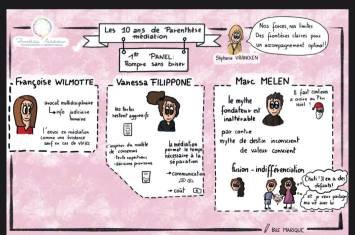 Les 10 ans de Parenthèse
médiation
1er PANEL:
Rompre sans briser
Nos forces, nos limites
Des frontières claires pour
un accompagnement optimal!
Stéphane VRANCKEN
Françoise WILMOTTE
avocat multidisciplinaire
info judiciaire
envoi en médiation
comme une évidence
sauf en cas de
Vanessa FILIPPONE
les textes
restent
s'inspirer du modèle
de consensus
la médiation
permet le temps
nécessaire à la
séparation
→ communication
→ coût
Marc MELEN
le mythe
fondateur est
inaltérable
par contre
mythe de destin inconscient
de valeur conscient
Il faut continuer
à croire au
fusion - indifférenciation
Ouh! Il en a des
défauts!
Et je veux partager
ma vie avec lui